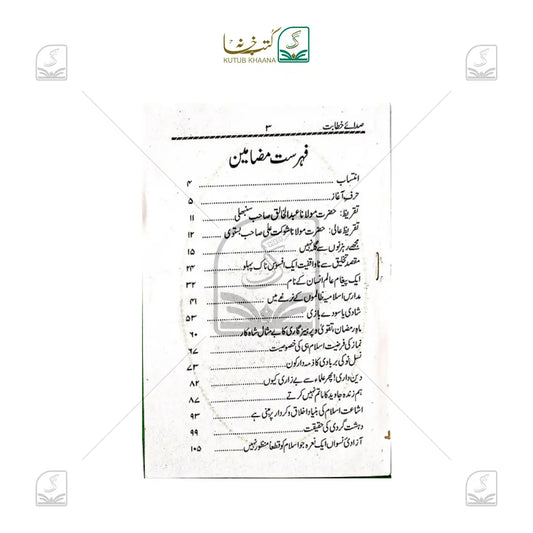 کتب خانہ
KUTUB KHAANA
صدائے خطابت ۳
فہرست مضامین
انتساب ۴
حرف آغاز ۵
تقریظ: حضرت مولانا عبدالخالق صاحب سنبھلی ۱۱
تقریظ عالی: حضرت مولانا شوکت علی صاحب بستوی ۱۲
مجھے رہزنوں سے گلہ نہیں ۱۵
مقصد تخلیق سے ناواقفیت ایک افسوس ناک پہلو ۲۴
ایک پیغام عالم انسان کے نام ۳۲
مدارس اسلامیہ ظالموں کے نرغے میں ۴۱
شادی یا سودے بازی ۵۳
ماہ رمضان، تقویٰ و پرہیز گاری کا بے مثال شاہ کار ۶۰
نماز کی فرضیت اسلام ہی کی خصوصیت ۶۷
نسل نو کی بربادی کا ذمہ دار کون ۷۳
دین داری! پھر علماء سے بے زاری کیوں ۸۲
ہم زندہ جاوید کا ماتم نہیں کرتے ۸۷
اشاعت اسلام کی بنیاد اخلاق و کردار پر مبنی ہے ۹۳
دہشت گردی کی حقیقت ۹۹
آزادئ نسواں ایک نعرہ جو اسلام کو قطعاً منظور نہیں ۱۰۵